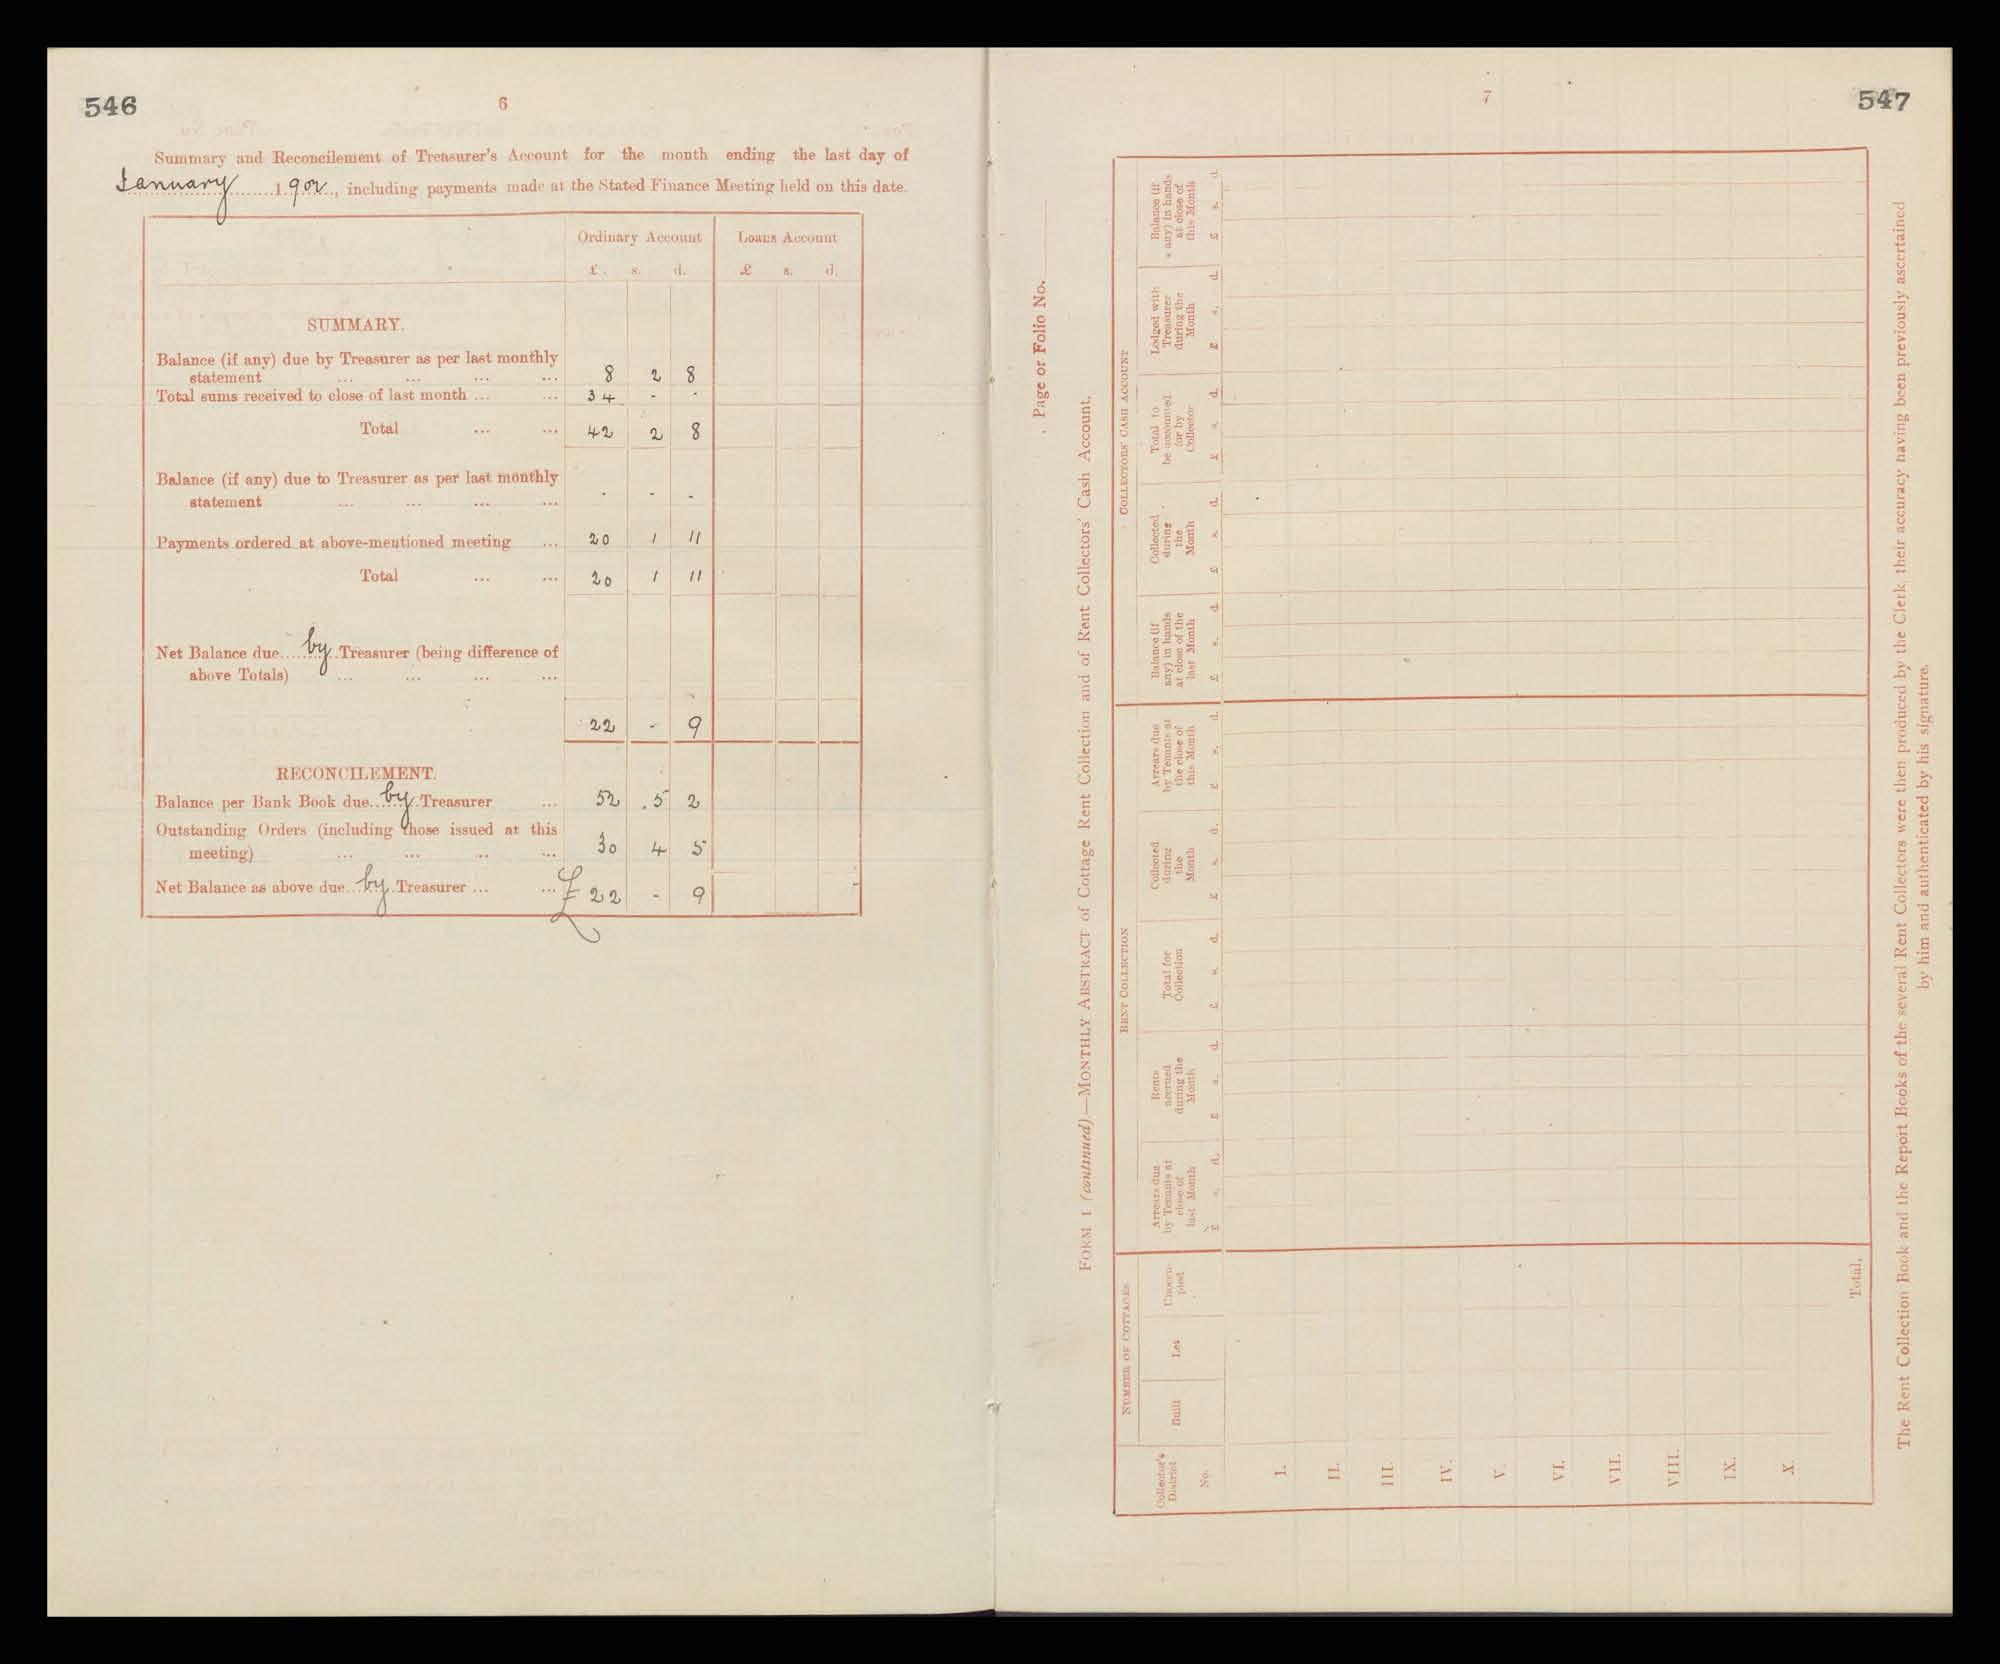 546
6
Summary and Reconcilement of Treasurer's Account for the month ending the last day of
January 1902, including payments made at the Stated Finance Meeting held on this date.
Ordinary Account Loans Account
£ s. d. £ s. d.
SUMMARY.
Balance (if any) due by Treasurer as per last monthly
statement ... ... ... ... 8 2 8
Total sums received to close of last month ... ... 34 - -
Total ... ... 42 2 8
Balance (if any) due to Treasurer as per last monthly
statement ... ... ... ... - - -
Payments ordered at above-mentioned meeting ... 20 1 11
Total ... ... 20 1 11
Net Balance due by Treasurer (being difference of
above Totals) ... ... ... ...
22 - 9
RECONCILEMENT.
Balance per Bank Book due by Treasurer ... 52 5 2
Outstanding Orders (including those issued at this
meeting) ... ... ... ... 30 4 5
Net Balance as above due by Treasurer ... ... £ 22 - 9
7
547
Page or Folio No.
FORM 1. (continued).—MONTHLY ABSTRACT of Cottage Rent Collection and of Rent Collectors' Cash Account.
NUMBER OF COTTAGES RENT COLLECTION COLLECTORS' CASH ACCOUNT
Collector's
District
No.
Built
Let
Unoccu-
pied
Arrears due
by Tenants at
close of
last Month
£ s. d.
Rents
accrued
during the
Month
£ s. d.
Total for
Collection
£ s. d.
Collected
during
the
Month
£ s. d.
Arrears due
by Tenants at
the close of
this Month
£ s. d.
Balance (if
any) in hands
at close of the
last Month
£ s. d.
Collected
during
the
Month
£ s. d.
Total to
be accounted
for by
Collector
£ s. d.
Lodged with
Treasurer
during the
Month
£ s. d.
Balance (if
any) in hands
at close of
this Month
£ s. d.
I.
II.
III.
IV.
V.
VI.
VII.
VIII.
IX.
X.
Total,
The Rent Collection Book and the Report Books of the several Rent Collectors were then produced by the Clerk, their accuracy having been previously ascertained
by him and authenticated by his signature.